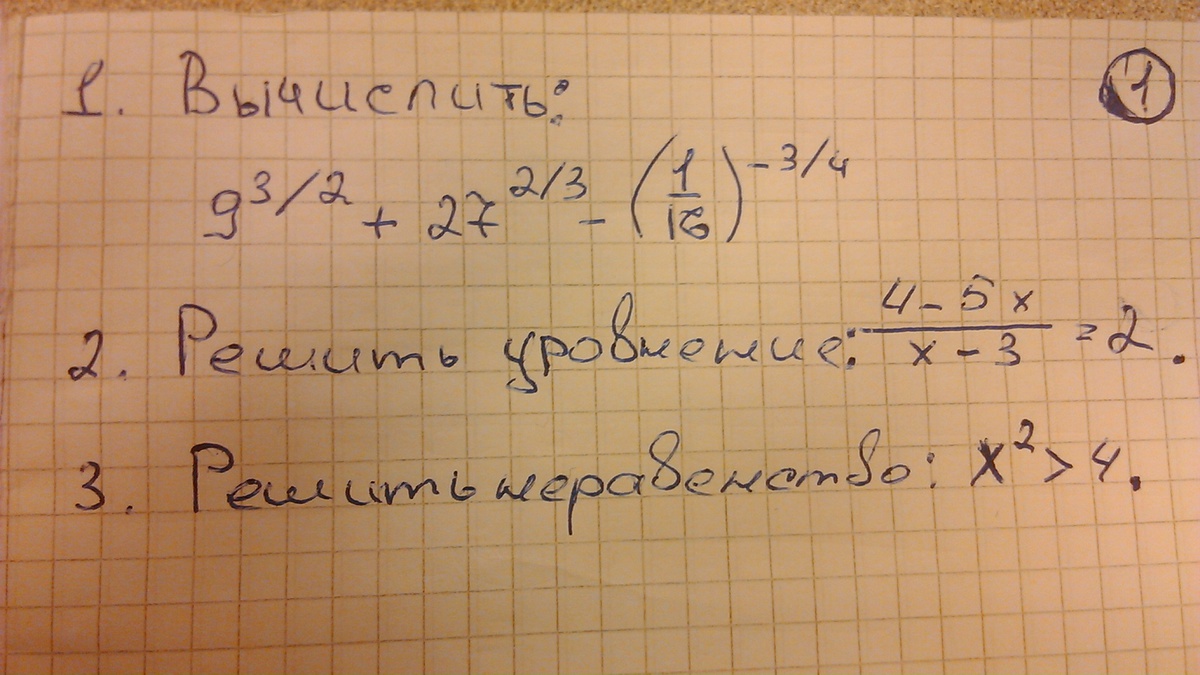 1. Вычислить:
①
9^3/2 + 27^2/3 - (1/16)^-3/4
2. Решить уровнение: (4-5x)/(x-3) = 2.
3. Решить неравенство: x² > 4.